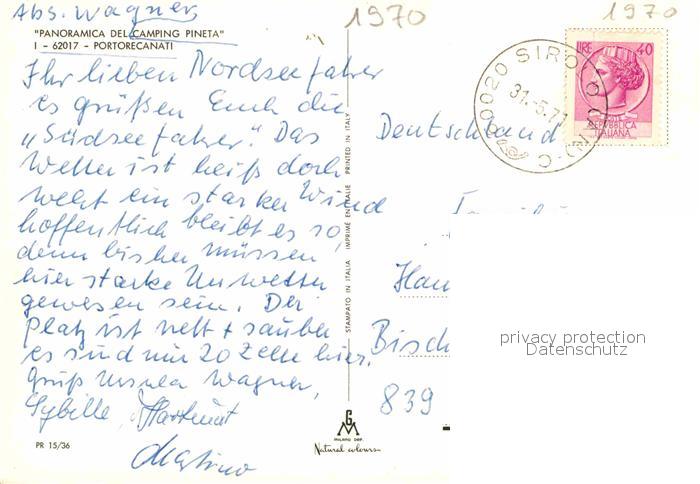 Abs. Wagner,
1970
1970
"PANORAMICA DEL CAMPING PINETA"
I - 62017 - PORTORECANATI
Ihr lieben Nordseefahrer
es grüßen Euch die
„Südseefahrer". Das
Wetter ist heiß doch
weht ein starker Wind
hoffentlich bleibt es so,
denn bisher müssen
hier starke Unwetter
gewesen sein. Der
Platz ist nett + sauber
es sind nur 20 Zelte hier.
Gruß Ursula Wagner,
Sybille, Hartmut
Martina
PR 15/36
STAMPATO IN ITALIA IMPRIMÉ EN ITALIE PRINTED IN ITALY
GM
MILANO DEP.
Natural colours
60020 SIROLO
31.-5.71
LIRE 40
REPUBBLICA
ITALIANA
Deutschland
Han
Bisch
839
privacy protection
Datenschutz